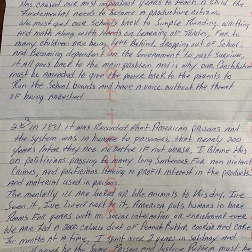 Has caused our most important years to teach a child the
fundamental needs to become a productive citizen.
We must get our schools back to simple Reading, writing,
and math along with hands on learning of trades. Far too
many children are being left behind, dropping out of school,
and becoming dependant on the Government to just survive.
It all goes back to the main problem and is our Constitution
must be amended to give the power back to the parents to
run the school boards and have a voice without the threat
of being
2nd in 1831 it was recorded that American prisons and
the system was so inhumane to prisoners, that nearly 200
years later they are no better if not worse. I blame this
on politicians passing to many long sentences for non violent
crimes, and politicians making a profit interest in the products
and materials used in prisons.
The mentally ill are locked up like animals to this day, I've
seen it, I've lived next to it. America puts humans in
for years with no social interaction or enrichment
We are fed a 2000 calorie diet of Peanut butter, cookies and
for months at a time. I spent over a year in solitary and